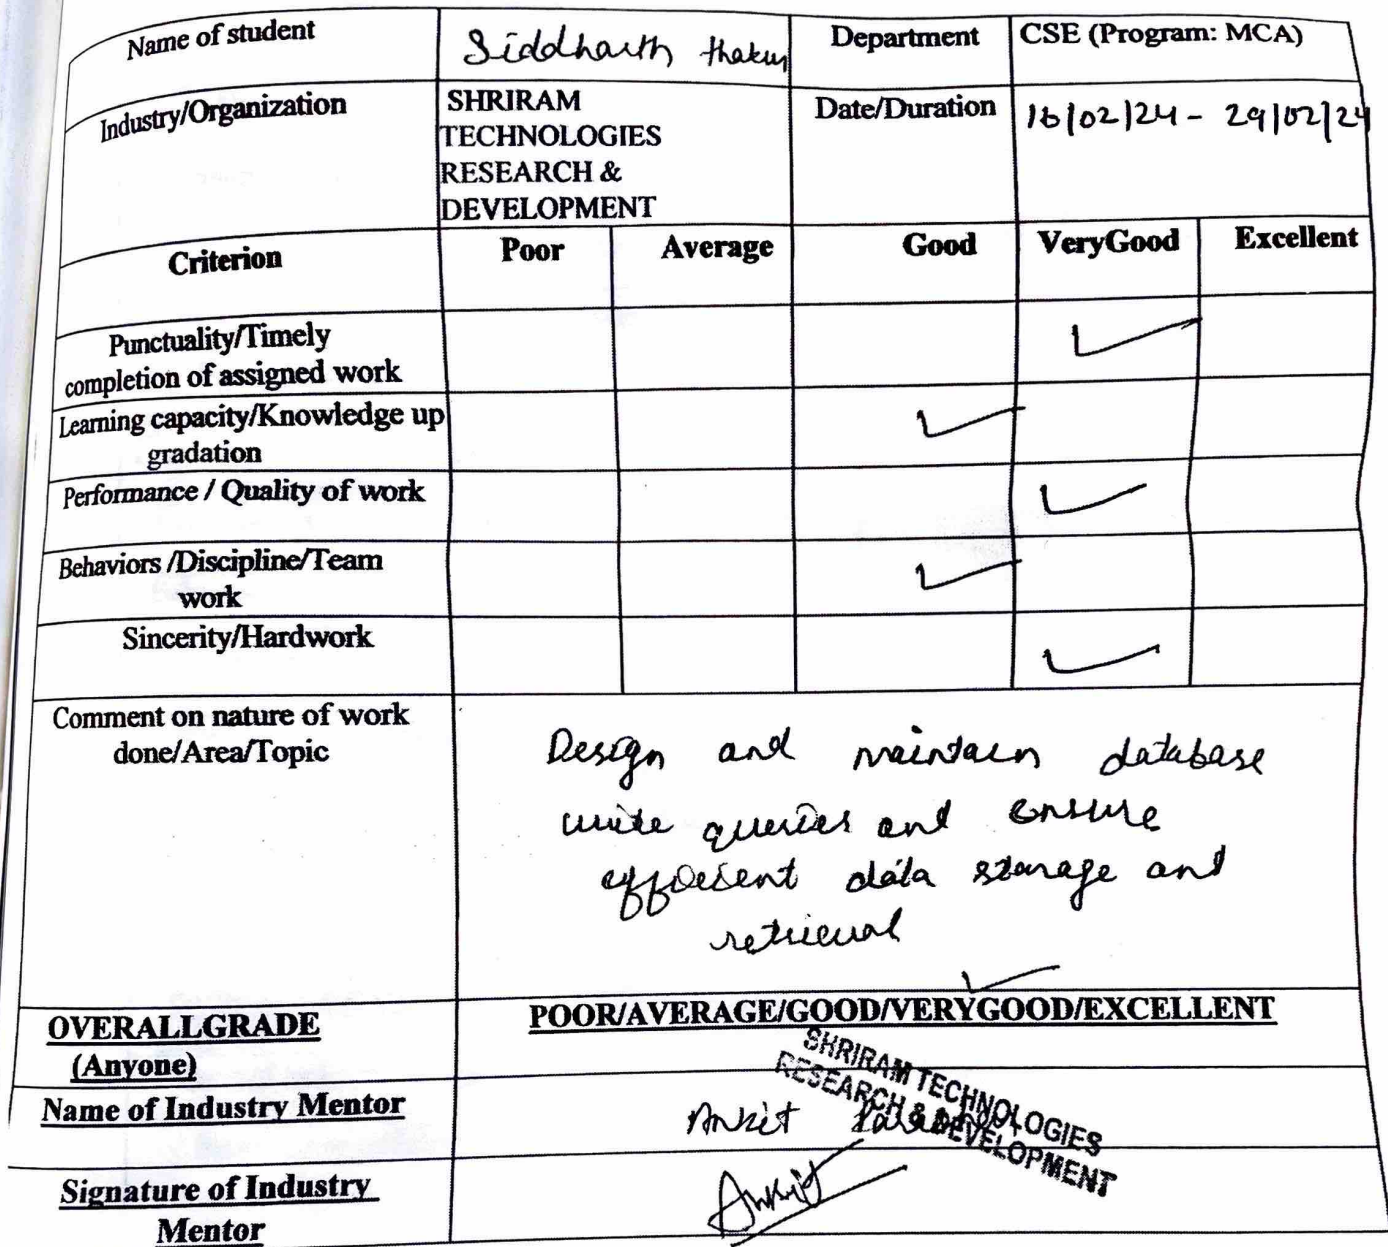 Name of student Siddharth thakur Department CSE (Program: MCA)
Industry/Organization SHRIRAM TECHNOLOGIES RESEARCH & DEVELOPMENT Date/Duration 16/02/24 - 29/02/24
Criterion Poor Average Good VeryGood Excellent
Punctuality/Timely
completion of assigned work
Learning capacity/Knowledge up
gradation
Performance / Quality of work
Behaviors /Discipline/Team
work
Sincerity/Hardwork
Comment on nature of work
done/Area/Topic
Design and maintain database
write queries and ensure
efficient data storage and
retrieval
OVERALLGRADE
(Anyone)
POOR/AVERAGE/GOOD/VERYGOOD/EXCELLENT
Name of Industry Mentor
Ankit
SHRIRAM TECHNOLOGIES
RESEARCH & DEVELOPMENT
Signature of Industry
Mentor
Ankit